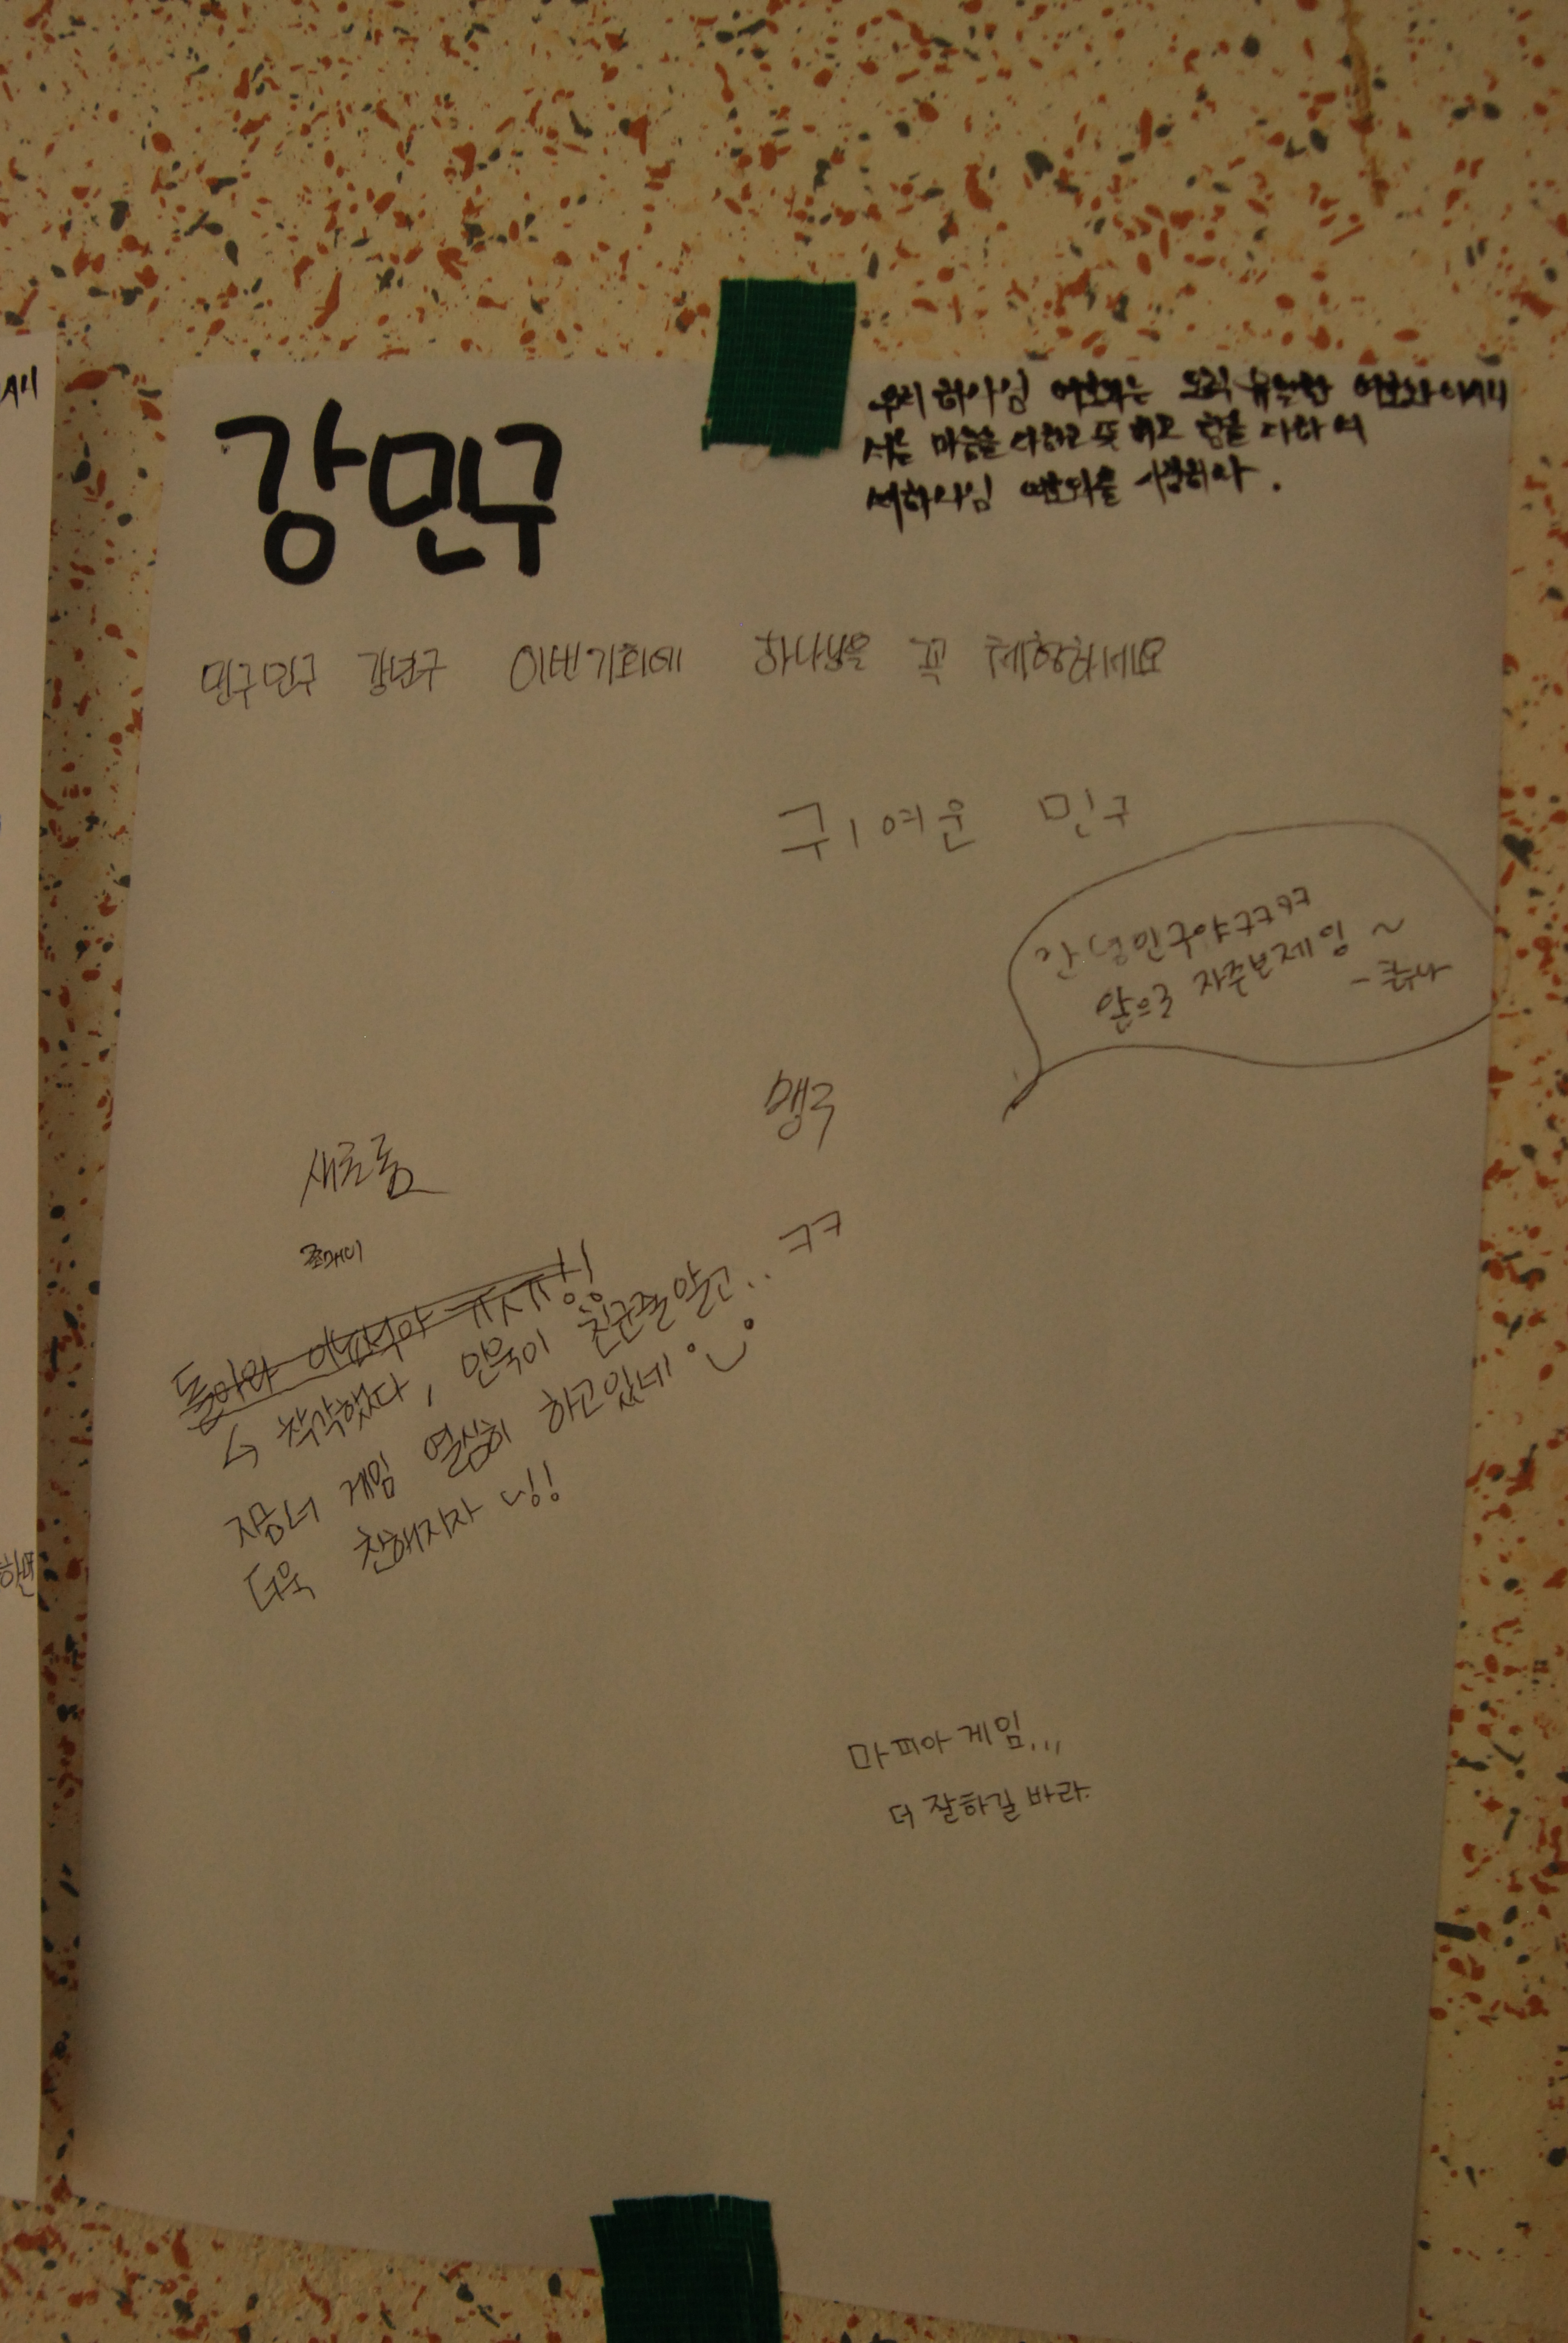 강민구
우리 하나님 여호와는 오직 유일한 여호와이시니
너는 마음을 다하고 뜻 다하고 힘을 다하여
네 하나님 여호와를 사랑하라.
민구민구 강민구 이번기회에 하나님을 꼭 체험하세요
구ㅣ여운 민구
안녕민구야ㅋㅋㅋㅋ
앞으로 자주보제임~
맹구
새로동
쪼매이
돌아와 이녀석아 ㅠㅅㅠ잉!
↳ 착각했다, 민욱이 친군줄알고.. ㅋㅋ
지금너 게임 열심히 하고있네
더욱 친해지자 닝!
마피아 게임...
더 잘하길 바라.
새